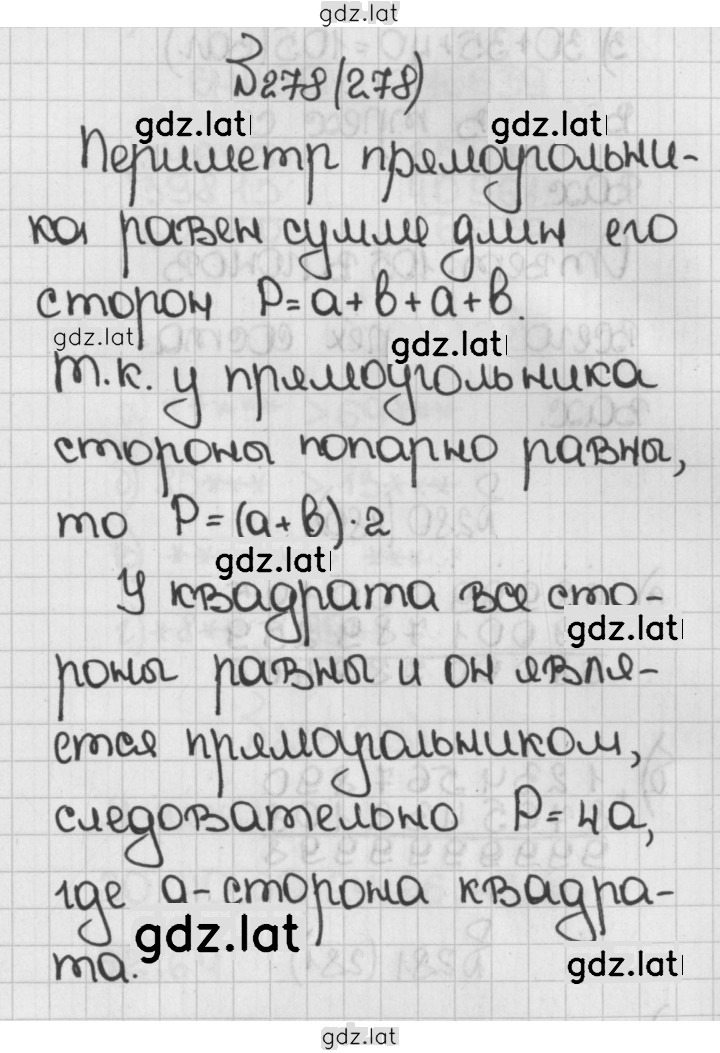 gdz.lat
№278(278)
gdz.lat gdz.lat
Периметр прямоугольни-
ка равен сумме длин его
сторон P=a+b+a+b.
gdz.lat gdz.lat
т.к. у прямоугольника
стороны попарно равны,
то P=(a+b)·2
gdz.lat
У квадрата все сто-
gdz.lat
роны равны и он явля-
ется прямоугольником,
следовательно P=4a,
где a-сторона квадра-
gdz.lat
та.
gdz.lat
gdz.lat